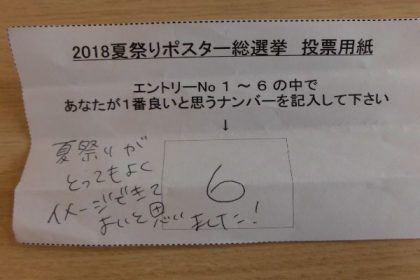 2018夏祭りポスター総選挙 投票用紙
エントリーNo １～６の中で
あなたが１番良いと思うナンバーを記入して下さい
↓
6
夏祭りが
とってもよく
イメージできて
よいと思いました!